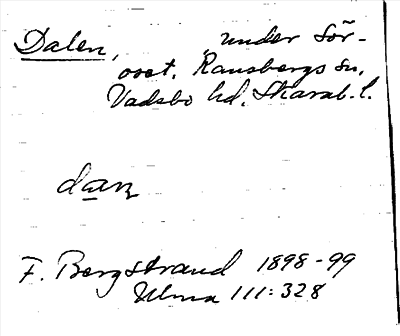 Dalen, under Sör-
oset, Ransbergs sn,
Vadsbo hd, Skarab. l.
dan
F. Bergstrand 1898-99
Ulma 111:328